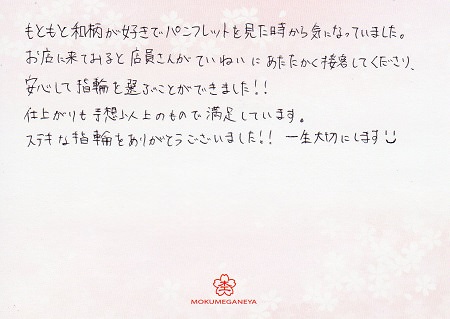 もともと和柄が好きでパンフレットを見た時から気になっていました。
お店に来てみると店員さんがていねいにあたたかく接客してくださり、
安心して指輪を選ぶことができました!!
仕上がりも予想以上のもので満足しています。
ステキな指輪をありがとうございました!! 一生大切にします
MOKUMEGANEYA